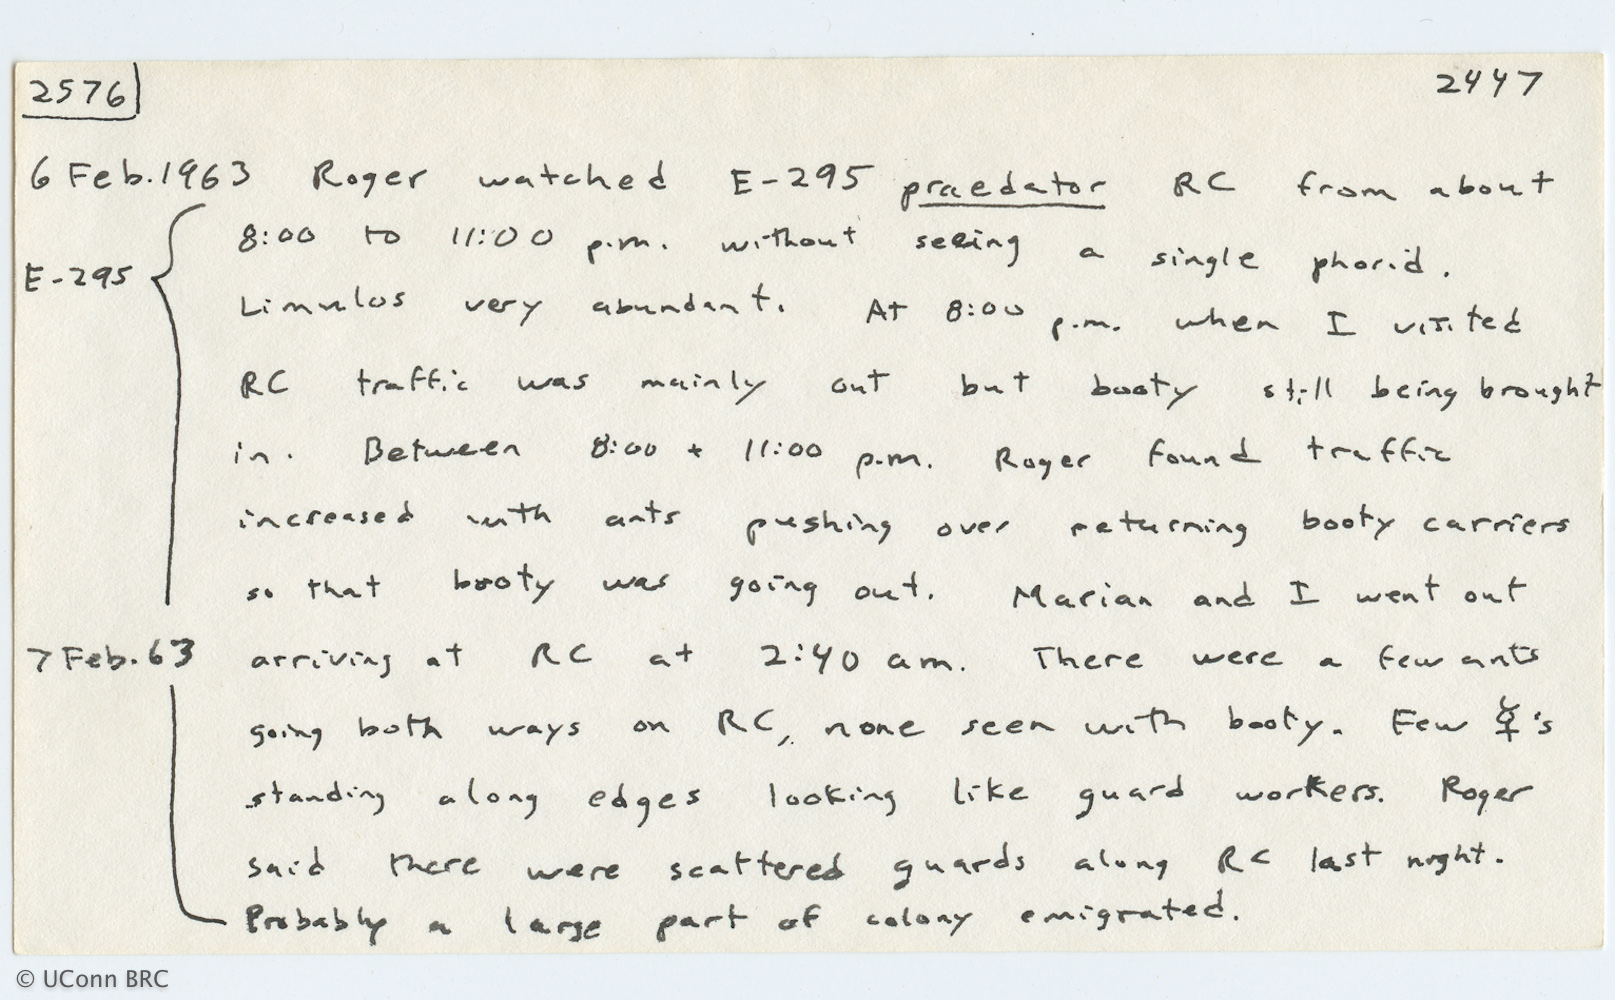 2576 2447
6 Feb. 1963 Roger watched E-295 praedator RC from about
8:00 to 11:00 p.m. without seeing a single phorid.
E-295
Limulos very abundant. At 8:00 p.m. when I visited
RC traffic was mainly out but booty still being brought
in. Between 8:00 + 11:00 p.m. Roger found traffic
increased with ants pushing over returning booty carriers
so that booty was going out. Marian and I went out
7 Feb. 63 arriving at RC at 2:40 am. There were a few ants
going both ways on RC, none seen with booty. Few ☿'s
standing along edges looking like guard workers. Roger
said there were scattered guards along RC last night.
Probably a large part of colony emigrated.
© UConn BRC